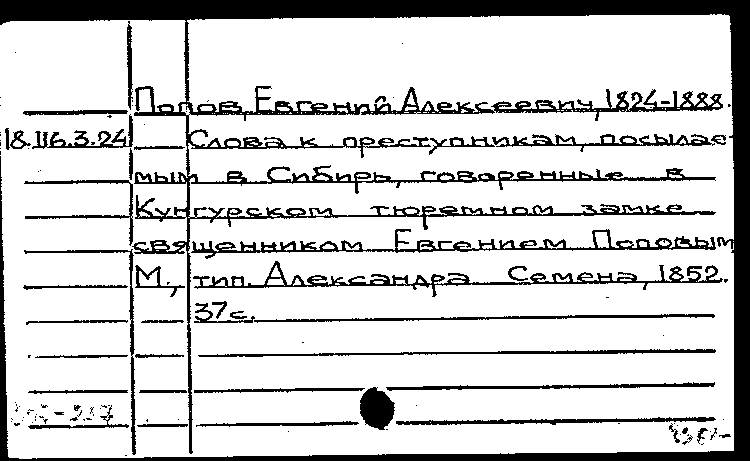 Попов, Евгений Алексеевич, 1824-1888.
18.116.3.24 Слова к преступникам, посылае-
мым в Сибирь, говоренные в
Кунгурском тюремном замке
священником Евгением Поповым
М., тип. Александра Семена, 1852.
37с.